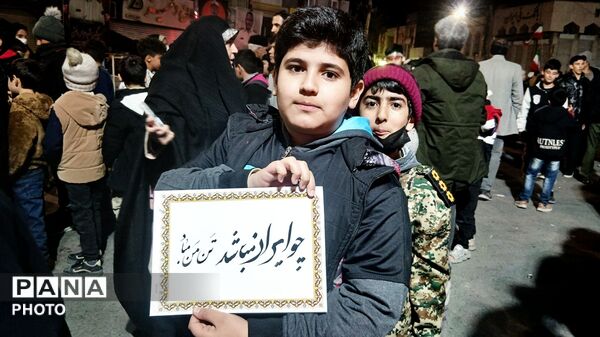 چو ایران نباشد تن من مباد
PANA
PHOTO